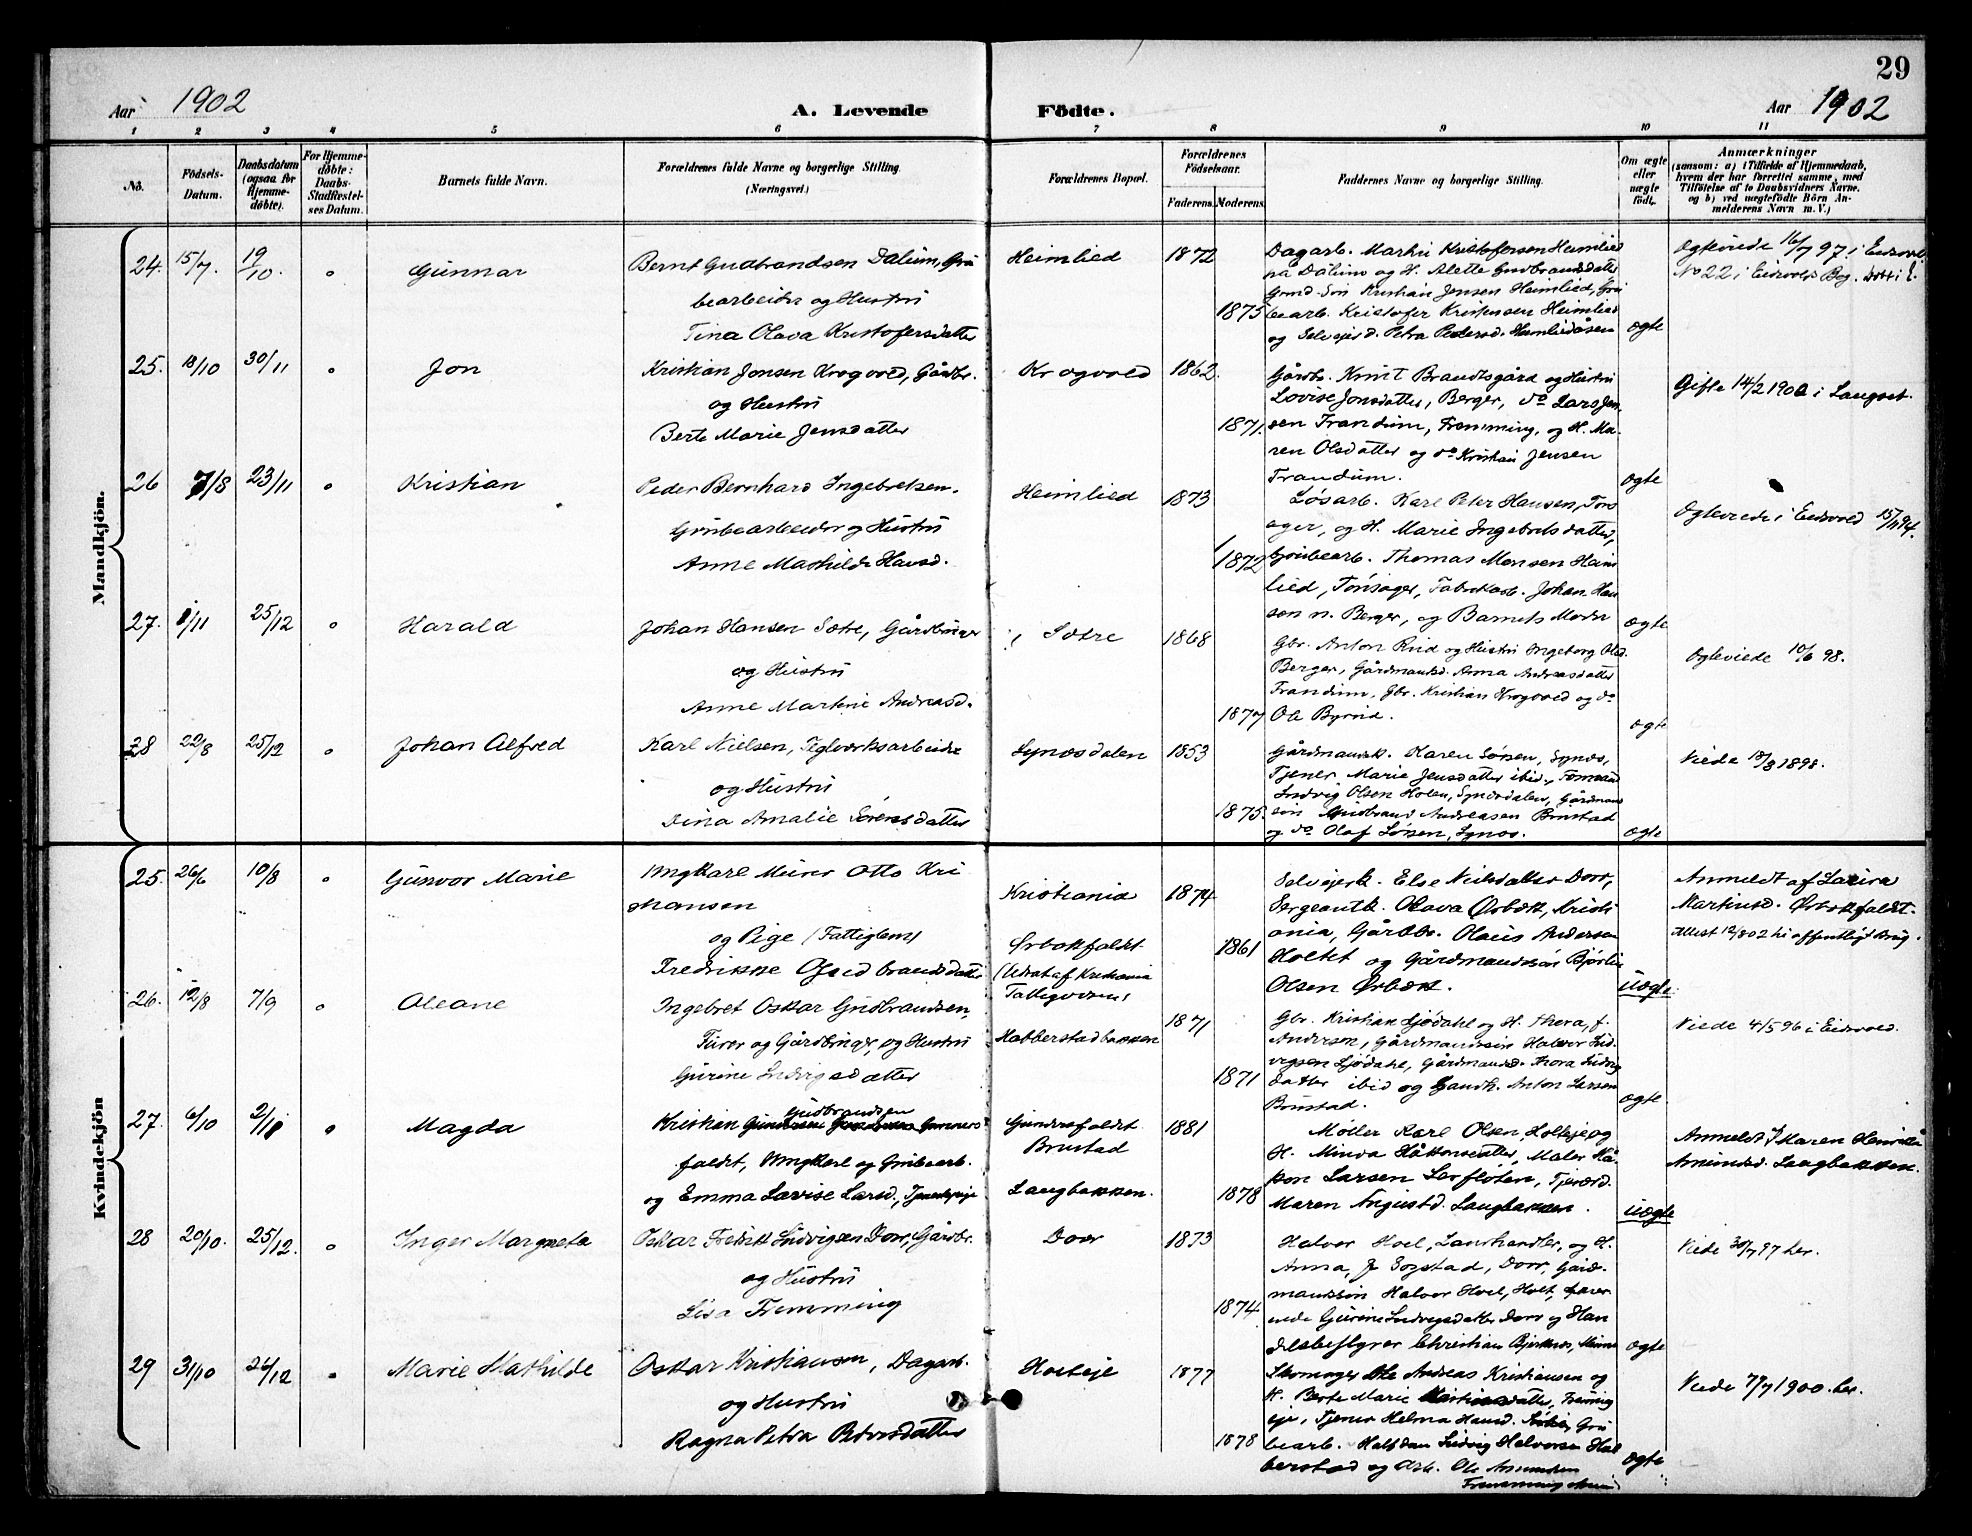 29
Aar 1902
A. Levende Födte.
Aar 1902
1 2 3 4 5 6 7 8 9 10 11
No.
Födsels-Datum.
Daabsdatum (ogsaa for Hjemme-döbte).
For Hjemme-döbte: Daabs-Stadfæstel-ses Datum.
Barnets fulde Navn.
Forældrenes fulde Navne og borgerlige Stilling. (Næringsvei.)
Forældrenes Bopæl.
Forældrenes Födselsaar.
Faderens. Moderens.
Faddernes Navne og borgerlige Stilling.
Om ægte eller uægte födt.
Anmærkninger
(saasom: a) i Tilfælde af Hjemmedaab,
hvem der har forrettet samme, med
Tilföielse af to Daabsvidners Navne.
og b) ved uægtefödte Börn An-
melderens Navn m. V.)
Mandkjön.
24. 15/7. 19/10. Gunnar
Bernt Gudbrandsen Dalum, Gru
bearbeider og Hustru
Tina Olava Kristofersdatter
Heimlied 1872 1875
Dagarb. Martin Kristofersen Heimlied
på Dålum og H. Alette Gudbrandsdatter
Gmd-Søn Kristian Jensen Heimlied, Gru
bearb. Kristofer Heimlied
og Selveierd. Petra Pedersd. Heimliedåsen
ægte
Ægteviede 16/7 97 i Eidsvol.
No 22 i Eidsvolds Bog.
25. 18/10 30/11 Jon
Kristian Jonsen Krogvold, Gårdbr.
og Hustru
Berte Marie Jensdatter
Krogvold 1862. 1871.
Gårdbr. Knut Brandtsgård og Hustru
Lovise Jonsdatter, Berger, do Lars Jen
sen Frandum, Fremming, og H. Ma-
ren Olsdatter og do Kristian Jensen
Frandum.
ægte
Gifte 14/2 1900 i Langset.
26 7/8 23/11 Kristian
Peder Bernhard Ingebretsen.
Grubearbeider og Hustru
Anne Mathilde Hansd.
Heimlied 1873 1872
Løsarb. Karl Peter Hansen, Tøns
ager, og H. Marie Ingebretsdatter,
Grubearb. Thomas Monsen Heim
lied, Tønsager, Fabrikarb. Johan Han
sen n. Berger, og Barnets Moder
ægte
Ægteviede i Eidsvold 15/11 94.
27. 1/11 25/12 Harald
Johan Hansen Sætre, Gårdbruger
og Hustru
Anne Martine Andreasd.
Sætre 1868 1877
Gbr. Anton Rud og Hustru Ingeborg Olsd.
Berger, Gårdmandsd. Anna Andreasdatter
Frandum, Gbr. Kristian Krogvold og do
Ole Byrud.
ægte
Ægteviede 10/6 98.
28 22/8 25/12 Johan Alfred
Karl Nielsen, Teglværksarbeider
og Hustru
Dina Amalie Sørensdatter
Synesdalen 1853 1875.
Gårdmandsk. Karen Sørsen, Synes,
Tjener Marie Jensdatter ibid.,
Ludvig Olsen Holen, Synesdalen, Gårdmands
søn Gudbrand Andreasen Brustad
og do Olaf Sørsen, Synes.
ægte
Viede 18/3 1898.
Kvindekjön
25. 26/6 10/8 Gunvor Marie
Ungkarl Murer Otto Kri
stiansen
og Pige (Fattiglem)
Fredrikke Gudbrandsdatter
Kristiania
Ørbækfaldet
(Udsat af Kristiania
Fattigvæsen)
1874 1861
Selveierk. Else Nilsdatter Dorr,
Sergeantk. Olava Ørbæk, Kristi
ania, Gårdbr. Olaus Andersen
Holtet og Gårdmandssøn Bjørlin
Olsen Ørbæk.
uægte
Anmeldt af Laura
Martinsd. Ørbækfaldet.
Attest 12/8 02 til offentligt Brug.
26. 12/8 7/9 Oleane
Ingebret Oskar Gudbrandsen,
Gårdbruger, og Hustru
Gurine Ludvigsdatter
Habberstadbakken
1871 1871
Gbr. Kristian Sjødahl og H. Thora, f.
Andersen, Gårdmandssøn Halvor Lud
vigsen Sjødahl, Gårdmandsd. Thora Ludvigs
datter ibid og Anton Larsen
Brustad.
ægte
Viede 4/5 96 i Eidsvold.
27. 6/10 2/11 Magda
Kristian Gudbrandsen Gunners
faldet, Ungkarl og Grubearb.
og Emma Lovise Larsd., Tjenestepige
Gundersfaldet
Brustad
Langbakken.
1881 1878
Møller Karl Olsen, Holteje og
H. Minda Håkonsdatter, Maler Hå-
kon Larsen Lerfloten,
Maren Augustd. Langbakken.
uægte
Anmeldt af Maren Henriette
Amundsd. Langbakken.
28 20/10. 25/12. Inger Margrete
Oskar Fredrik Ludvigsen Dorr, Gårdbr.
og Hustru
Lisa Fremming
Dorr 1873 1874
Halvor Hoel, Landhandler, og H.
Anna, f. Sogstad, Dorr, Gård-
mandssøn Halvor Hoel, Holt,
Gurine Ludvigsdatter Dorr og Han
delsbestyrer Christian
ægte
Viede 30/7 97 her.
29 31/10 26/12 Marie Mathilde
Oskar Kristiansen, Dagarb.
og Hustru
Ragna Petra Petersdatter
Holteje 1877 1878
Skomager Ole Andreas Kristiansen og
H. Berte Marie
eje, Tjener Helma Hansd. Gru
bearb. Halfdan Ludvig Halvorsen Hab
berstad og Arb. Ole Amundsen
Fremming
ægte
Viede 7/7 1900 her.